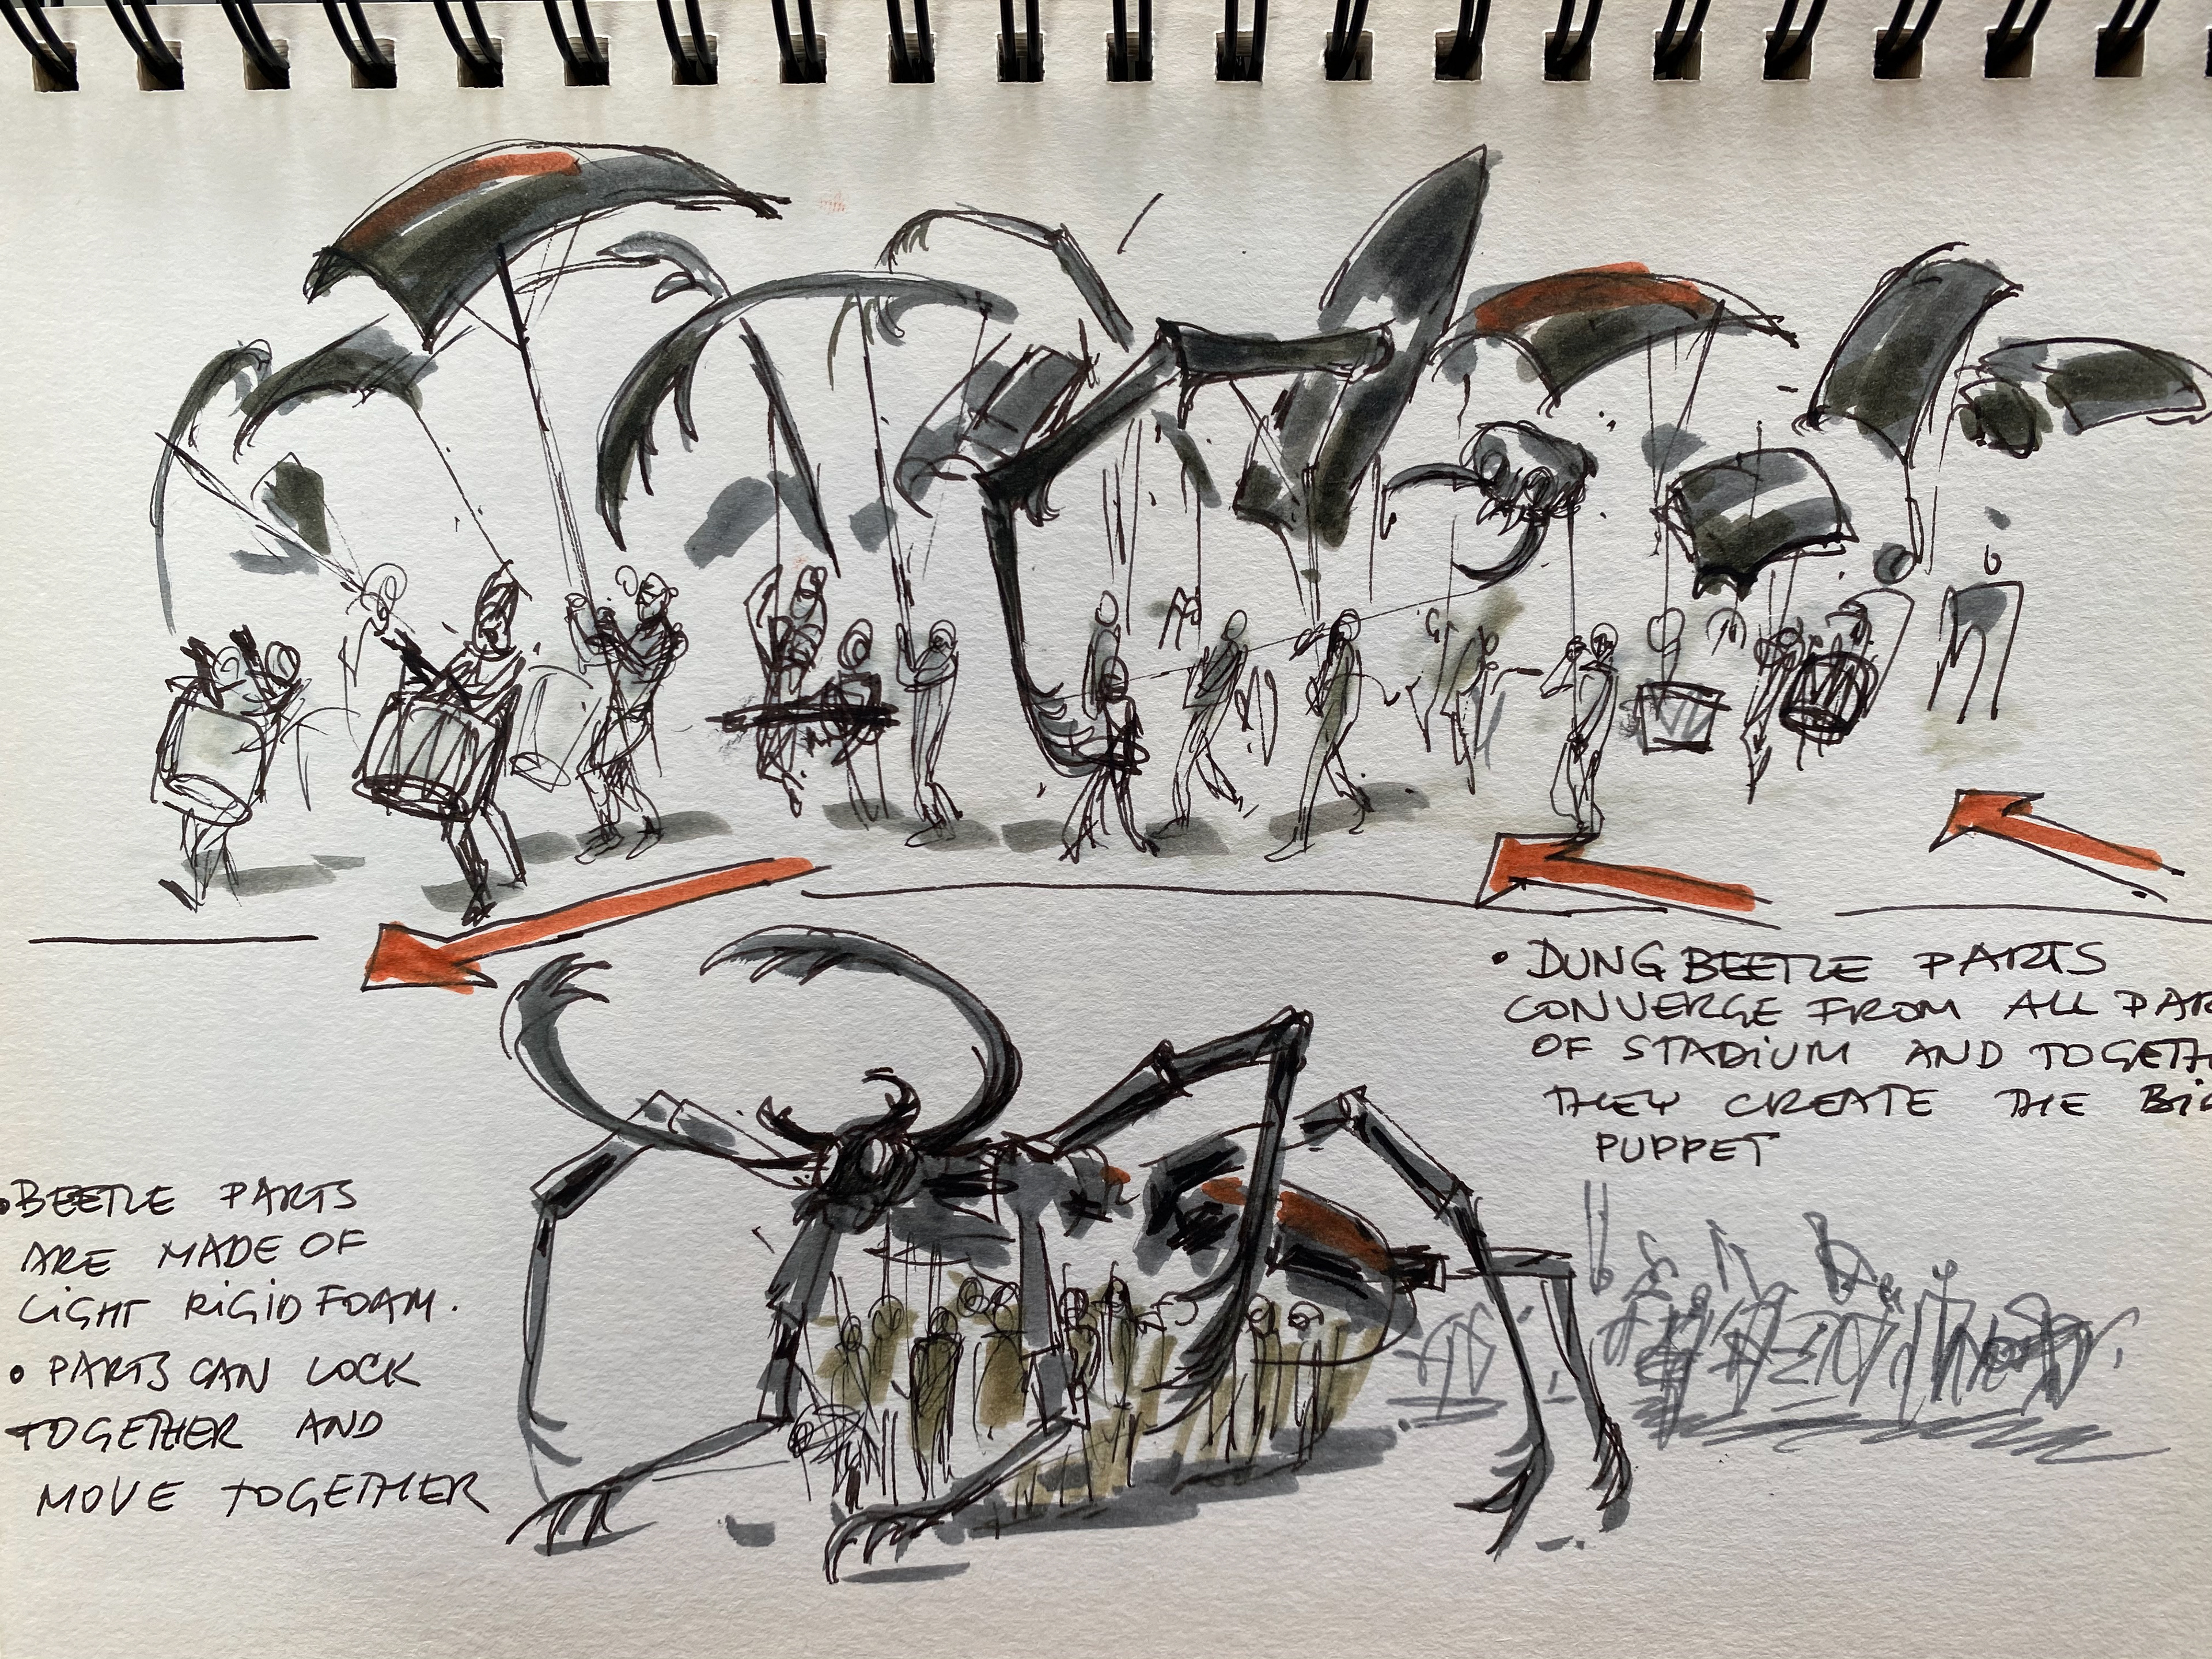 • DUNG BEETLE PARTS
CONVERGE FROM ALL PAR
OF STADIUM AND TOGETH
THEY CREATE THE BIG
PUPPET
• BEETLE PARTS
ARE MADE OF
LIGHT RIGID FOAM.
• PARTS CAN LOCK
TOGETHER AND
MOVE TOGETHER